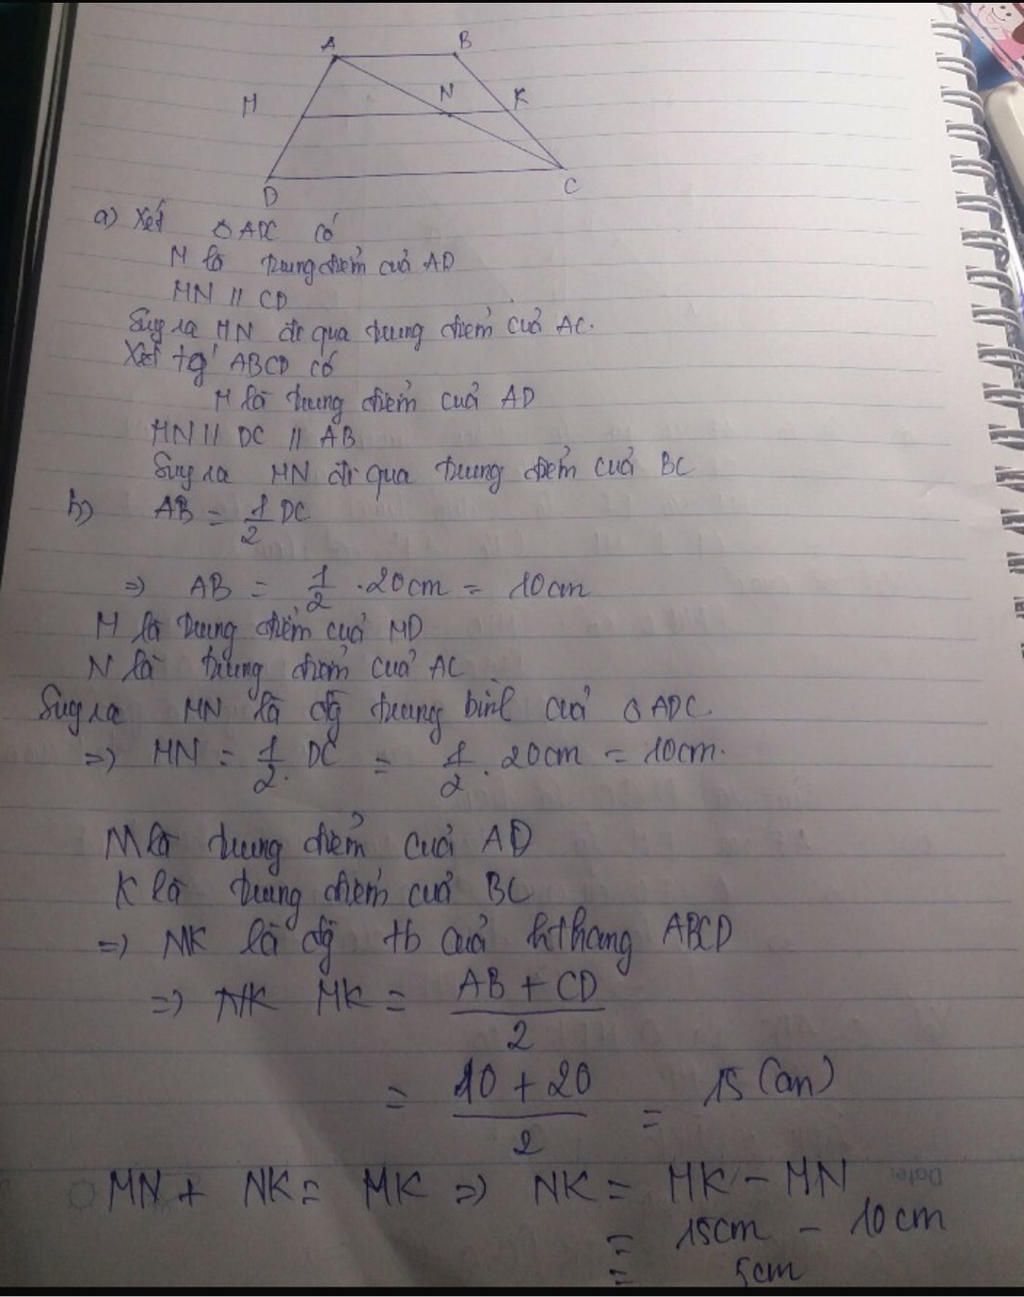 A B
M N K
D C
a) Xét △ADC có
M là trung điểm của AD
MN // CD
Suy ra MN đi qua trung điểm của AC.
Xét tg ABCD có
M là trung điểm của AD
MN // DC // AB
Suy ra MN đi qua trung điểm của BC
b) AB = 1/2 DC
=> AB = 1/2 . 20cm = 10cm
M là trung điểm của MD
N là trung điểm của AC
Suy ra MN là đg trung bình của △ADC.
=> MN = 1/2 . DC = 1/2 . 20cm = 10cm.
M là trung điểm của AD
K là trung điểm của BC
=> NK là đg tb của hthang ABCD
=> NK MK = (AB + CD)/2
= (10 + 20)/2 = 15 (cm)
MN + NK = MK => NK = MK - MN
= 15cm - 10cm
= 5cm